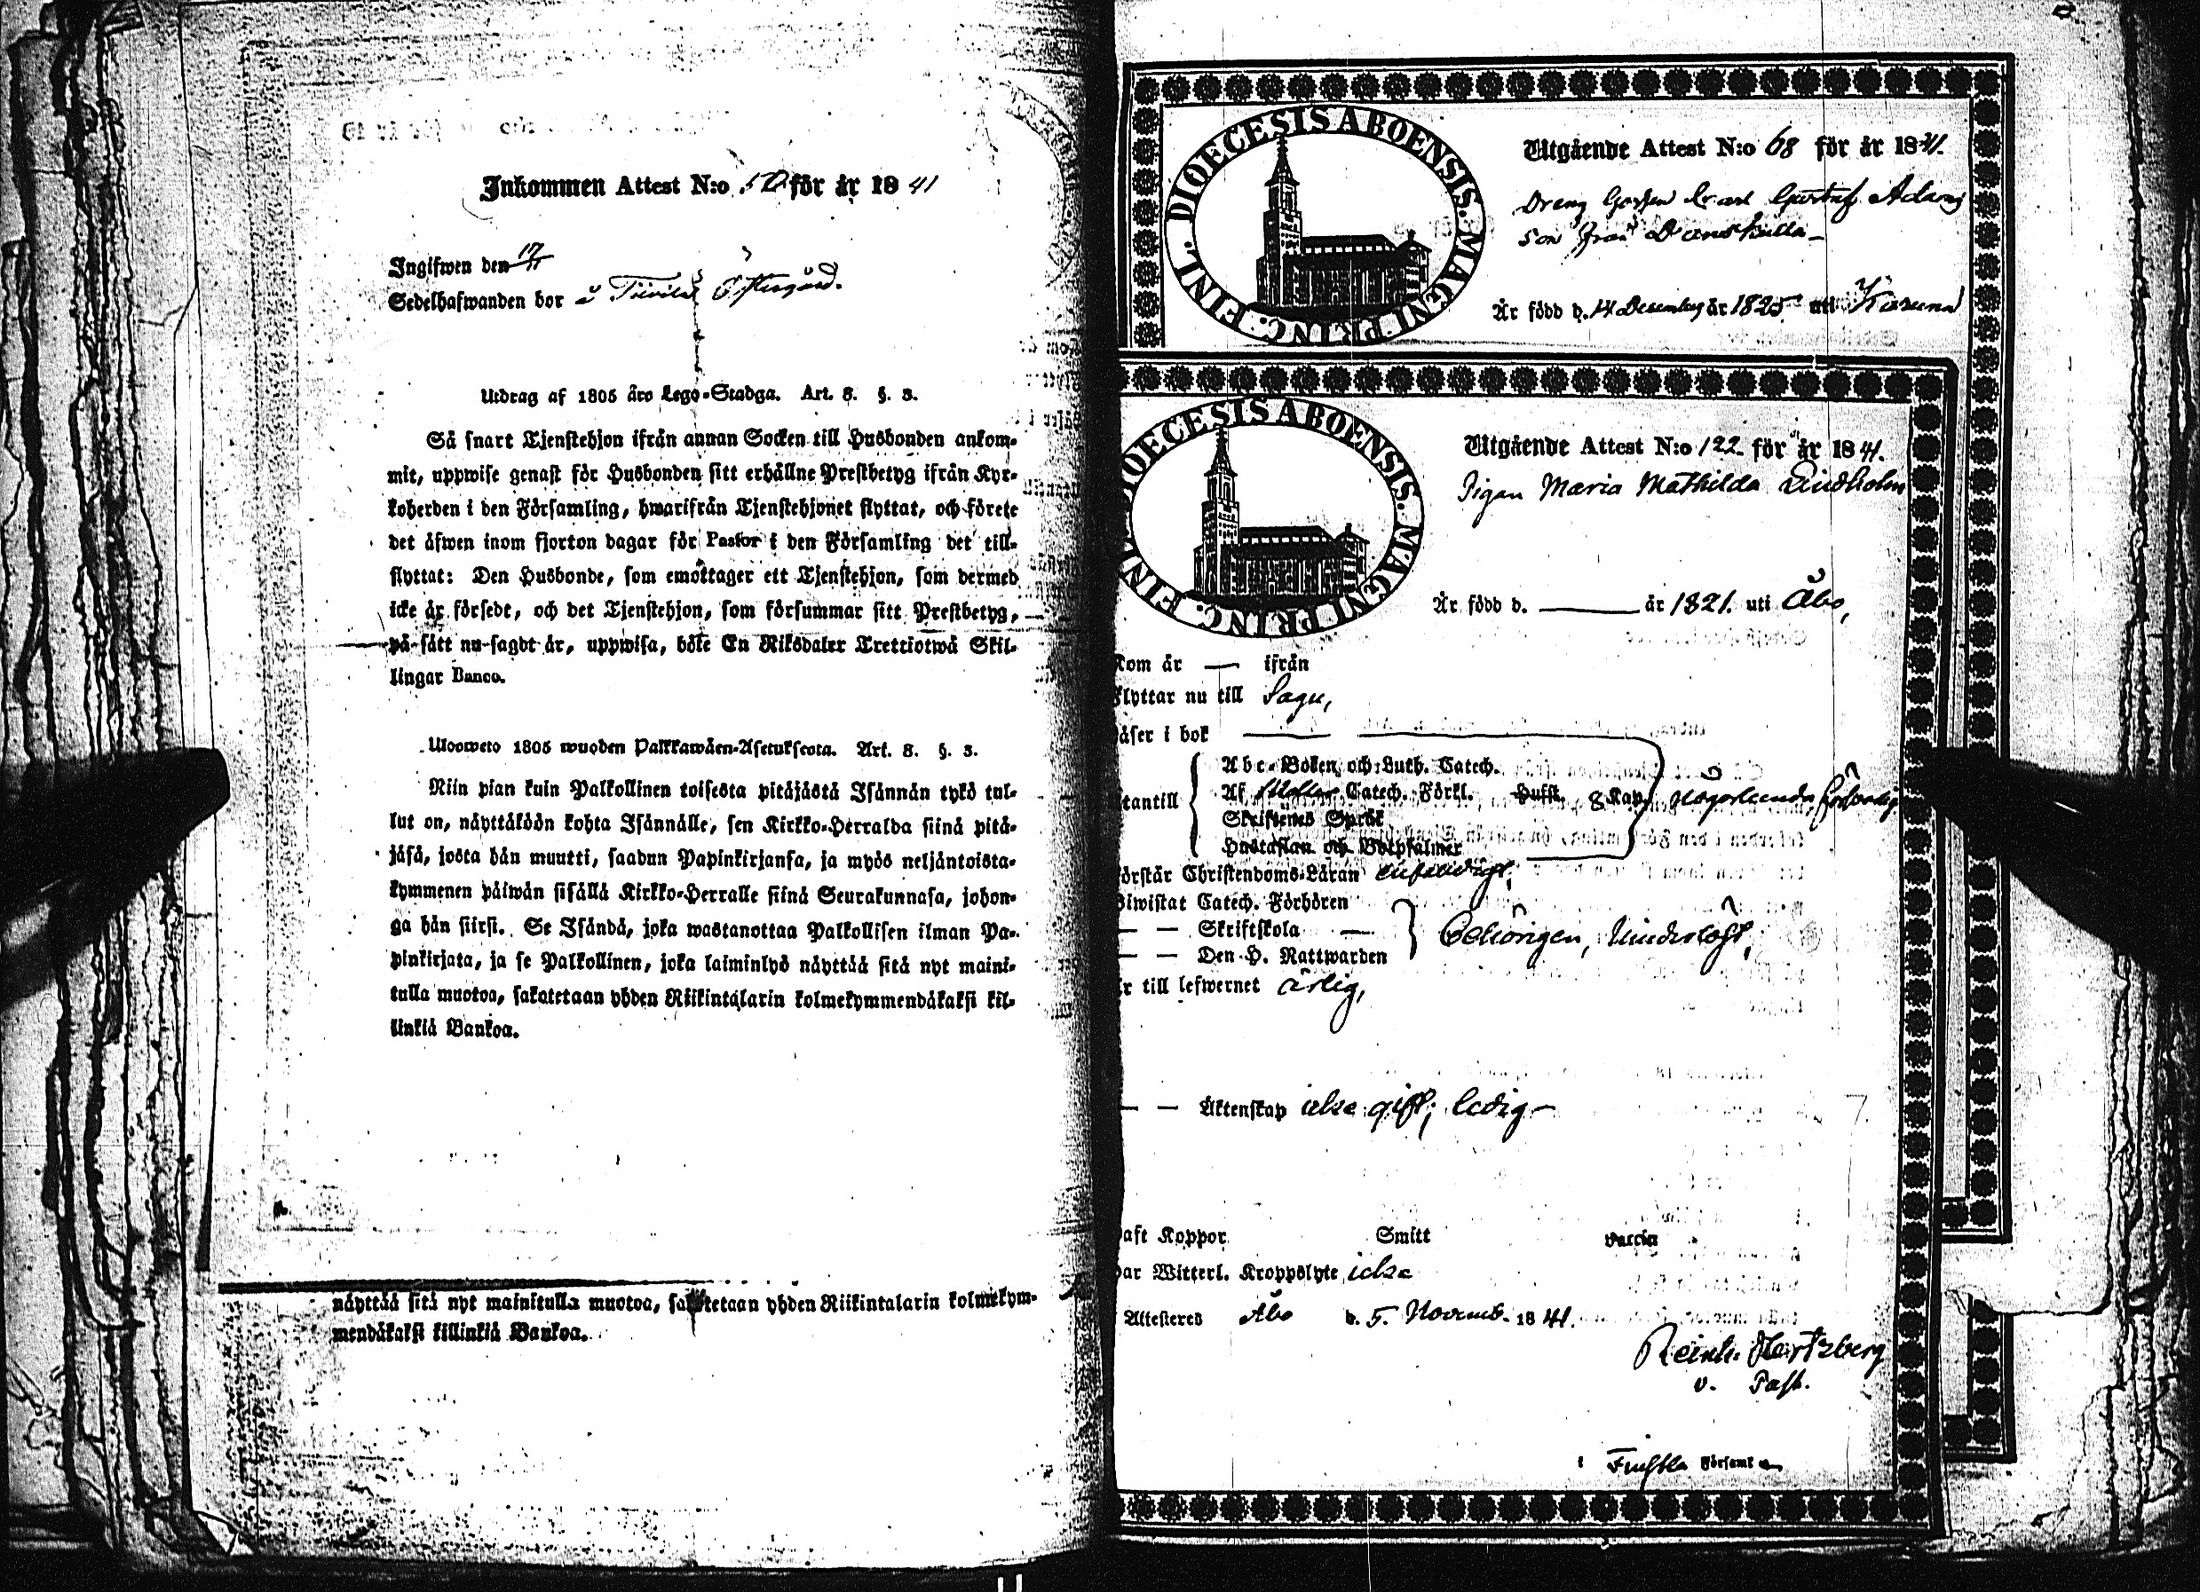 Inkommen Attest N:o 50 för år 1841
Ingifwen den 17/11
Sedelhafwanden bor å
Utdrag af 1805 års Lego-Stadga. Art. 8. §. 3.
Så snart Tjenstehjon ifrån annan Socken till Husbonden ankom-
mit, uppwise genast för Husbonden sitt erhållne Prestbetyg ifrån Kyr-
koherden i den Församling, hwarifrån Tjenstehjonet flyttat, och förete
det äfwen inom fjorton dagar för Pastor i den Församling det till-
flyttat: Den Husbonde, som emottager ett Tjenstehjon, som dermed
icke är försedt, och det Tjenstehjon, som försummar sitt Prestbetyg,
på sätt nu sagdt är, uppwisa, böte En Riksdaler Trettiotwå Skil-
lingar Banco.
Ulosweto 1805 wuoden Palkkawäen-Asetuksesta. Art. 8. §. 3.
Niin pian kuin Palkollinen toisesta pitäjästä Isännän tykö tul-
lut on, näyttäköön kohta Isännälle, sen Kirkko-Herralda siinä pitä-
jäsä, josta hän muutti, saadun Papinkirjansa, ja myös neljäntoista-
kymmenen päiwän sisällä Kirkko-Herralle siinä Seurakunnasa, johon-
ga hän siirsi. Se Isändä, joka wastanottaa Palkollisen ilman Pa-
pinkirjata, ja se Palkollinen, joka laiminlyö näyttää sitä nyt maini-
tulla muotoa, sakotetaan yhden Riikintalarin kolmekymmendäkaksi kil-
linkiä Bankoa.
näyttää sitä nyt mainitulla muotoa, sakotetaan yhden Riikintalarin kolmekym-
mendäkaksi killinkiä Bankoa.
DIOECESIS ABOENSIS. MAGNI PRINC. FINL.
Utgående Attest N:o 68 för år 1841.
Dreng Gossen Carl Gustaf Adams
son från Danskulla
Är född d. 14 December år 1825 uti Karuna
DIOECESIS ABOENSIS. MAGNI PRINC. FINL.
Utgående Attest N:o 122 för år 1841.
Pigan Maria Mathilda Lindholm
Är född d. — år 1821. uti Åbo,
Kom år — ifrån
Flyttar nu till Sagu,
Läser i bok
Utantill
Abc-Boken och Luth. Catech.
Af Catech. Förkl. Husst. 8 Kap. Någorlunda försvarlig.
Skriftenes Språk
Hustaflan och Botpsalmer
Förstår Christendoms-Läran enfaldigt,
Biwistat Catech. Förhören
— — Skriftskola — Behörigen,
— — Den H. Nattwarden
Är till lefwernet ärlig,
— — Äktenskap icke gift; ledig
Haft Koppor Smitt Vaccin
Har Witterl. Kroppslyte icke
Attesteres Åbo d. 5. Novemb. 1841.
Reinh. Hertzberg
v. Past.
i Finska Församl